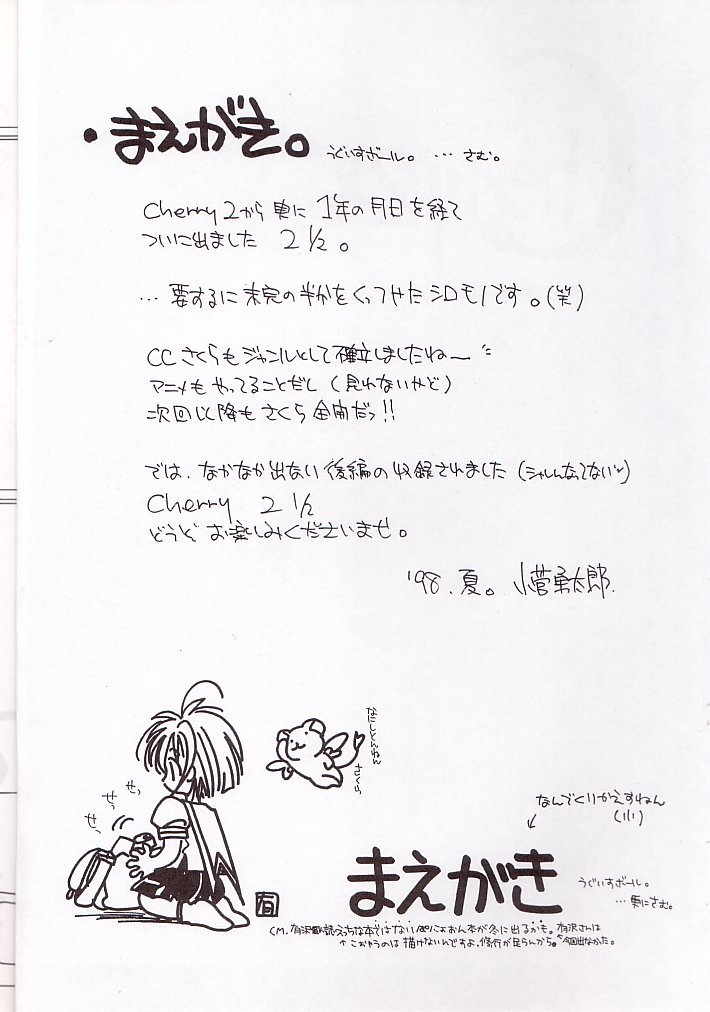 ・まえがき。 うぐいすボール。 … さむ。
Cherry 2から 更に 1年の月日を経て
ついに出ました 2 1/2。
… 要するに 未完の半分をくっつけた シロモノです。(笑)
CCさくらもジャンルとして確立しましたね〜
アニメも やってることだし (見れないけど)
次回以降も さくら 全開だっ!!
では、なかなか出ない 後編の 収録されました (シャレんなってないッ)
Cherry 2 1/2
どうぞ お楽しみくださいませ。
'98. 夏。 小菅勇太郎.
なにしとんねん
さくら
せっ
せっ
せっ
なんでくりかえすねん
(小)
↙
有
まえがき うぐいすボール。
… 更にさむ。
CM. 有沢 えっちな本ではない ぷにょおん本が冬に出るかも。有沢さんは
↑ こおゆうのは 描けないんですよ、修行が足らんから。 今回出なかった。